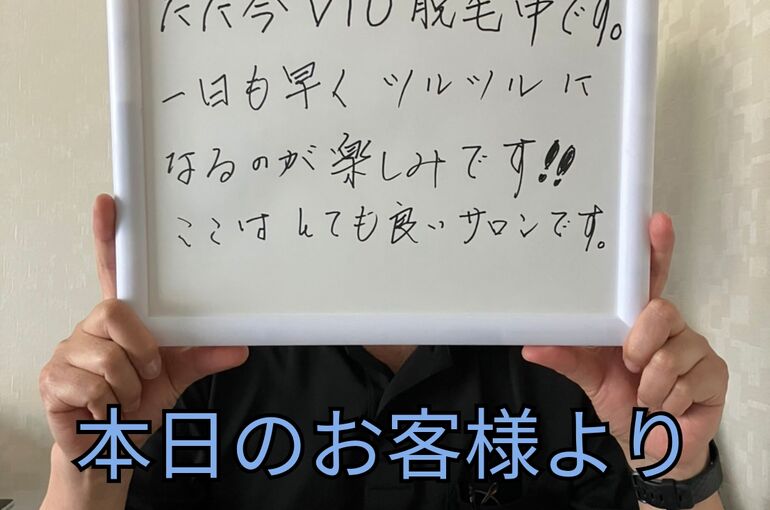 ただ今VIO脱毛中です。
一日も早くツルツルに
なるのが楽しみです!!
ここはとても良いサロンです。
本日のお客様より